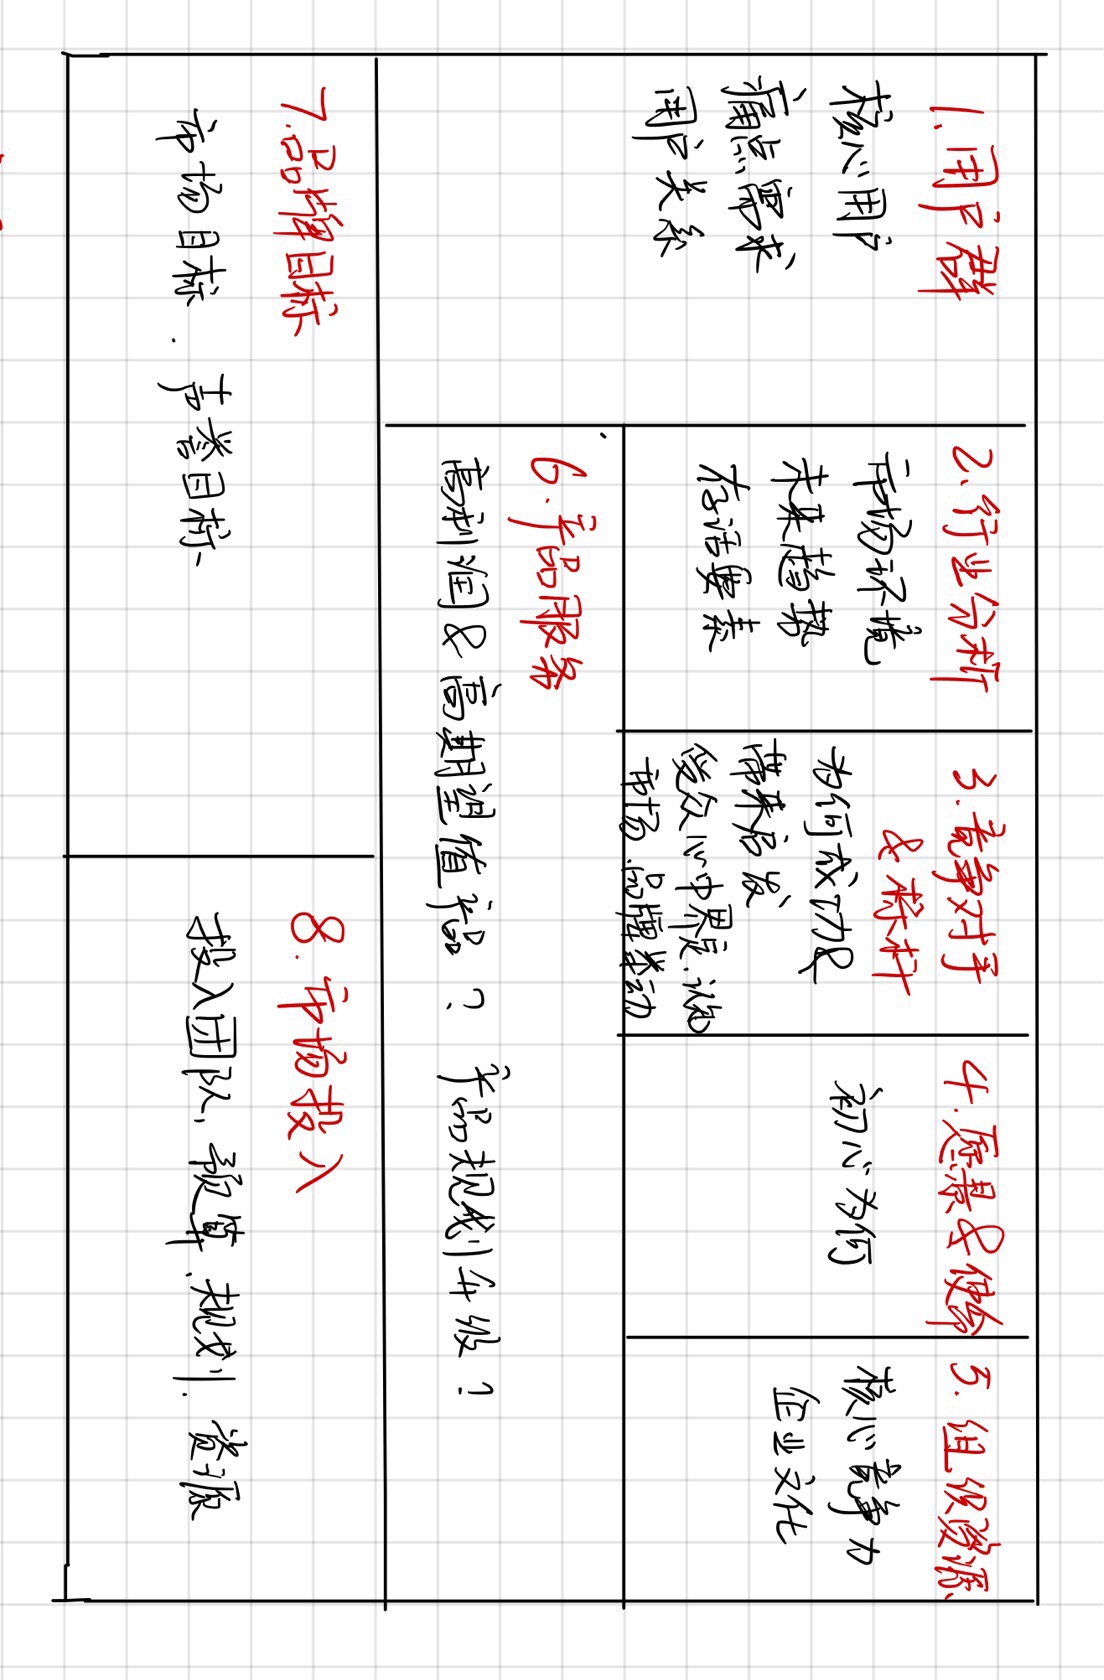 1.用户群
核心用户
痛点需求
用户关系
2.行业分析
市场环境
未来趋势
存活要素
3.竞争对手
&标杆
为何成功&
带来启发
受众心中界定.说
市场.品牌举动
4.愿景&使命
初心为何
5.组织资源
核心竞争力
企业文化
6.产品服务
高利润&高期望值产品？ 产品规划升级？
7.品牌目标
市场目标.声誉目标
8.市场投入
投入团队,预算.规划.资源